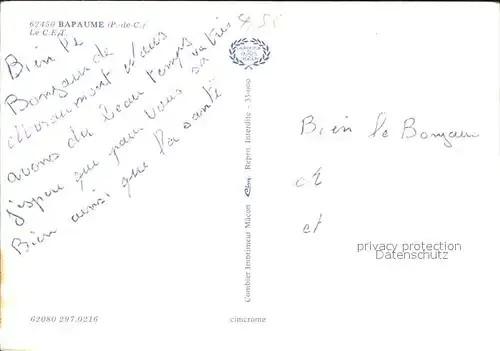 62450 BAPAUME (P.-de-C.)
Le C.E.T.
Bien le
Bonjour de
nous
avons du beau temps
j'espère que pour vous sa
Bien ainsi que la santé
Combier Imprimeur Mâcon Cim Repro. Interdite - 35-000
Bien le Bonjour
et
privacy protection
Datenschutz
62080 297.0216
cimcrome